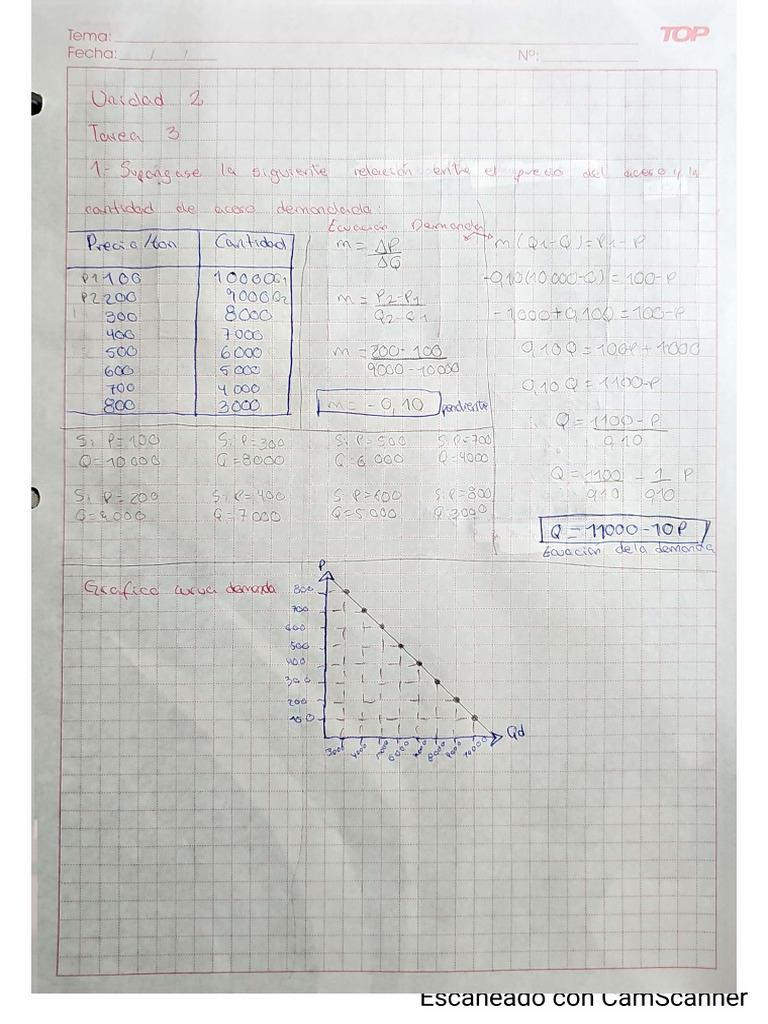 Tema:
TOP
Fecha: / /
Nº:
Unidad 2
Tarea 3
1.- Supongase la siguiente relación entre el precio del acero y la
cantidad de acero demandada:
Precio/ton Cantidad
P1 100 10000 Q1
P2 200 9000 Q2
300 8000
400 7000
500 6000
600 5000
700 4000
800 3000
Ecuación Demanda
m = ΔP/ΔQ
m = P2-P1/Q2-Q1
m = 200-100/9000-10000
m = -0,10 pendiente
m(Q1-Q)=P1-P
-0,10(10 000-Q)=100-P
-1000+0,10Q=100-P
0,10Q=100-P+1000
0,10Q=1100-P
Q=1100-P/0,10
Q=1100/0,10-1/0,10 P
Q=11000-10P
Ecuación de la demanda
Si P=100 Si P=300 Si P=500 Si P=700
Q=10000 Q=8000 Q=6000 Q=4000
Si P=200 Si P=400 Si P=600 Si P=800
Q=9000 Q=7000 Q=5000 Q=3000
Grafico curva demanda
P
800
700
600
500
400
300
200
100
3000 4000 5000 6000 7000 8000 9000 10000
Qd
Escaneado con CamScanner